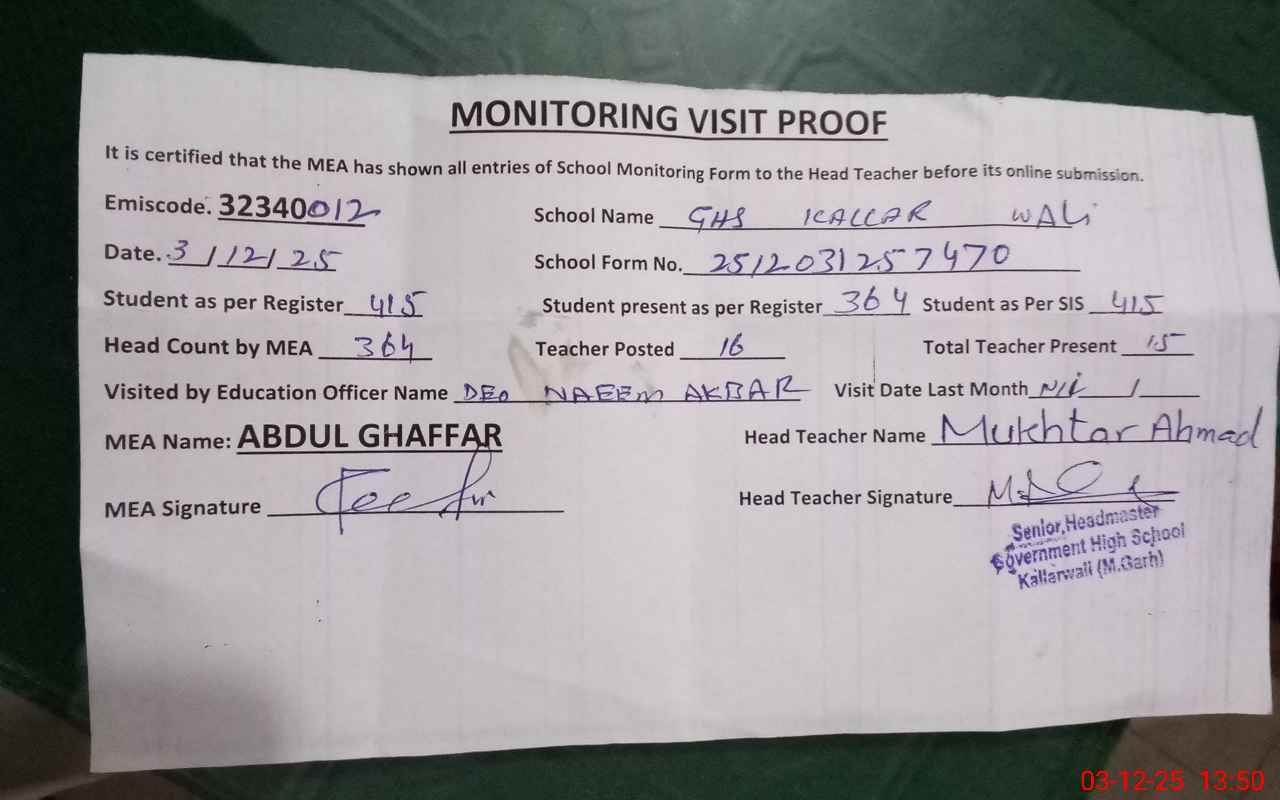 MONITORING VISIT PROOF
It is certified that the MEA has shown all entries of School Monitoring Form to the Head Teacher before its online submission.
Emiscode. 32340012 School Name GHS KALLAR WALi
Date. 3/12/25 School Form No. 2512031257470
Student as per Register 415 Student present as per Register 364 Student as Per SIS 415
Head Count by MEA 364 Teacher Posted 16 Total Teacher Present 15
Visited by Education Officer Name DEO NAEEM AKBAR Visit Date Last Month Nil /
MEA Name: ABDUL GHAFFAR Head Teacher Name Mukhtar Ahmad
MEA Signature Head Teacher Signature
Senior, Headmaster
Government High School
Kallarwali (M.Garh)
03-12-25 13:50